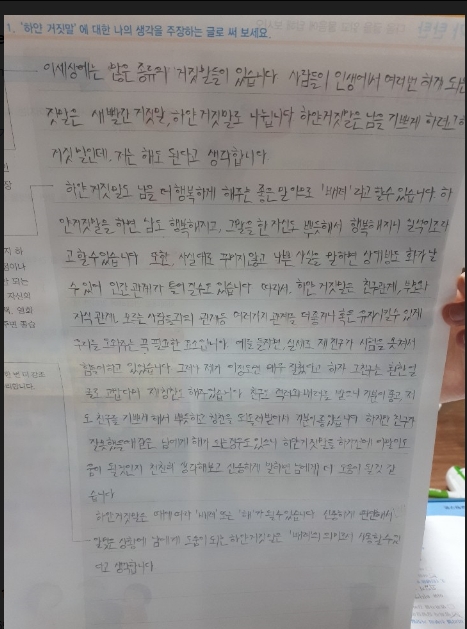 1. '하얀 거짓말'에 대한 나의 생각을 주장하는 글로 써 보세요.
이세상에는 많은 종류의 거짓말들이 있습니다 사람들이 인생에서 여러번 하게 되는
짓말은 새빨간 거짓말, 하얀 거짓말로 나뉩니다 하얀거짓말은 남을 기쁘게 하려고 하
거짓말인데. 저는 해도 된다고 생각합니다.
하얀 거짓말도 남을 더 행복하게 해주는 좋은 말이므로 '배려'라고 할수 있습니다 하
얀거짓말을 하면 남도 행복해지고, 그 말을 한 자신도 뿌듯해서 행복해지니 일석이조라
고 할수있습니다 또한, 사실대로 꾸미지 않고 나쁜 사실을 말하면 상대방도 화가 날
수 있어 인간관계가 틀어질수도 있습니다 따라서, 하얀 거짓말은 친구관계, 부모와
자식 관계, 모르는 사람들과의 관계등 여러가지 관계를 더 좋거나 혹은 유지시킬수 있게
꼭 필요한 요소입니다 예를 들자면, 실제로 제 친구가 시험을 못쳐서
힘들어하고 있었습니다 그래서 제가 이정도면 매우 잘했다고 하자 그친구는
고맙다며 해주었습니다 친구는 격려와 배려를 받으니 기분이 좋고, 저
도 친구를 기쁘게 해서 뿌듯하고 기분이 좋았습니다 하지만 친구가
남에게 해가 되는경우도 있으니 하얀거짓말을 하기전에
움이 될것인지 천천히 생각해보고 신중하게 말하면 남에게 더 도움이 될것 같
습니다
하얀거짓말은 때에 따라 '배려' 또는 '해'가 될수있습니다 신중하게 판단해서
알맞은 상황에 남에게 도움이 되는 하얀거짓말은 '배려'의 의미로서 사용할수있
다고 생각합니다